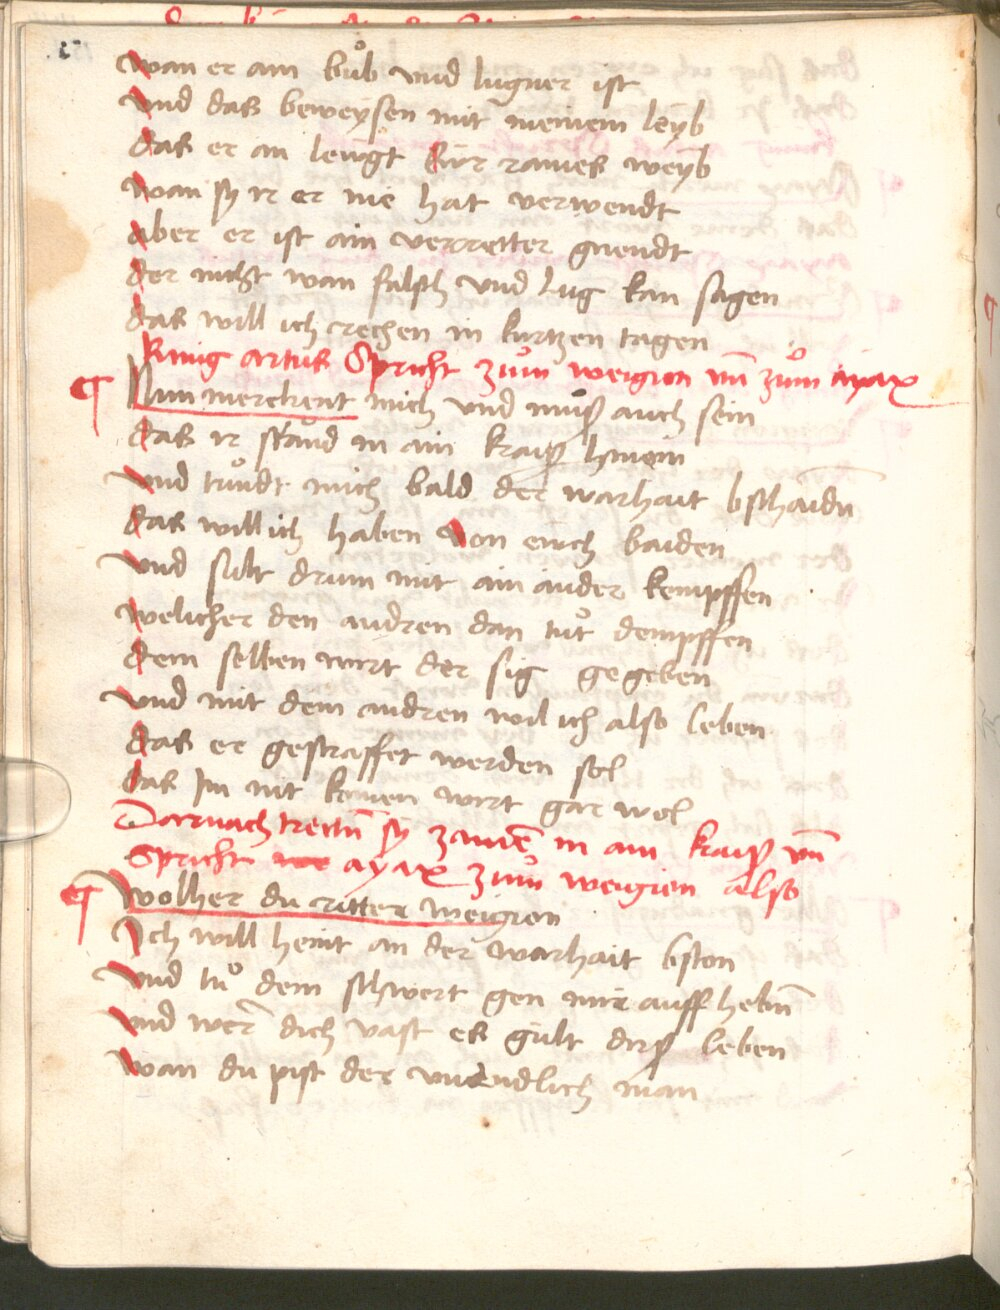 wan er ain bůb vnd lugner ist
vnd das beweysen mit meinem leyb
das er an leugt eür raines weyb
wan sy ir er nie hat verwendt
aber er ist ain verretter gnendt
der nicht wan falsch vnd lug kan sagen
das will ich rechen in kurtzen tagen
King artus Spricht zům weigion vn̄ zům ayax
Nun merckent mich vnd můß auch sein
das ir stand in ain kraiß hinein
vnd kündt mich bald der warhait bschaidn̄
das will ich haben von eưch baiden
vnd sült drum mit ain ander kempffen
welicher den andren dan tůt dempffen
dem selben wirt der sig gegeben
vnd mit dem andren wil ich also leben
das er gestraffet werden sol
das Im nit komen wirt gar wol
Darnach trettn̄ sy zamē in ain kraiß vn̄
spricht ayax zům weigion also
wolher du ritter weigion
Ich will heint an der warhait bston
vnd tů dem schwert gen mir auff hebn̄
vnd wer dich vast es gült dirß leben
wan du pist der vnendlich man